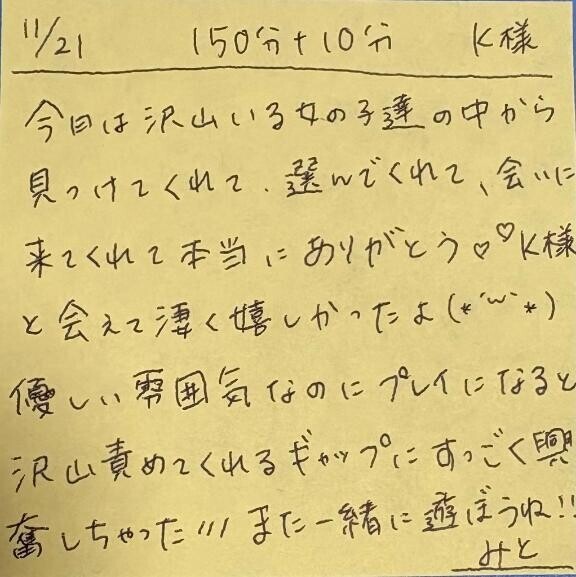 11/21 150分+10分 K様
今日は沢山いる女の子達の中から
見つけてくれて、選んでくれて、会いに
来てくれて本当にありがとう♡♡K様
と会えて凄く嬉しかったよ(*´ω`*)
優しい雰囲気なのにプレイになると
沢山責めてくれるギャップにすっごく興
奮しちゃった!!!また一緒に遊ぼうね!!
みと